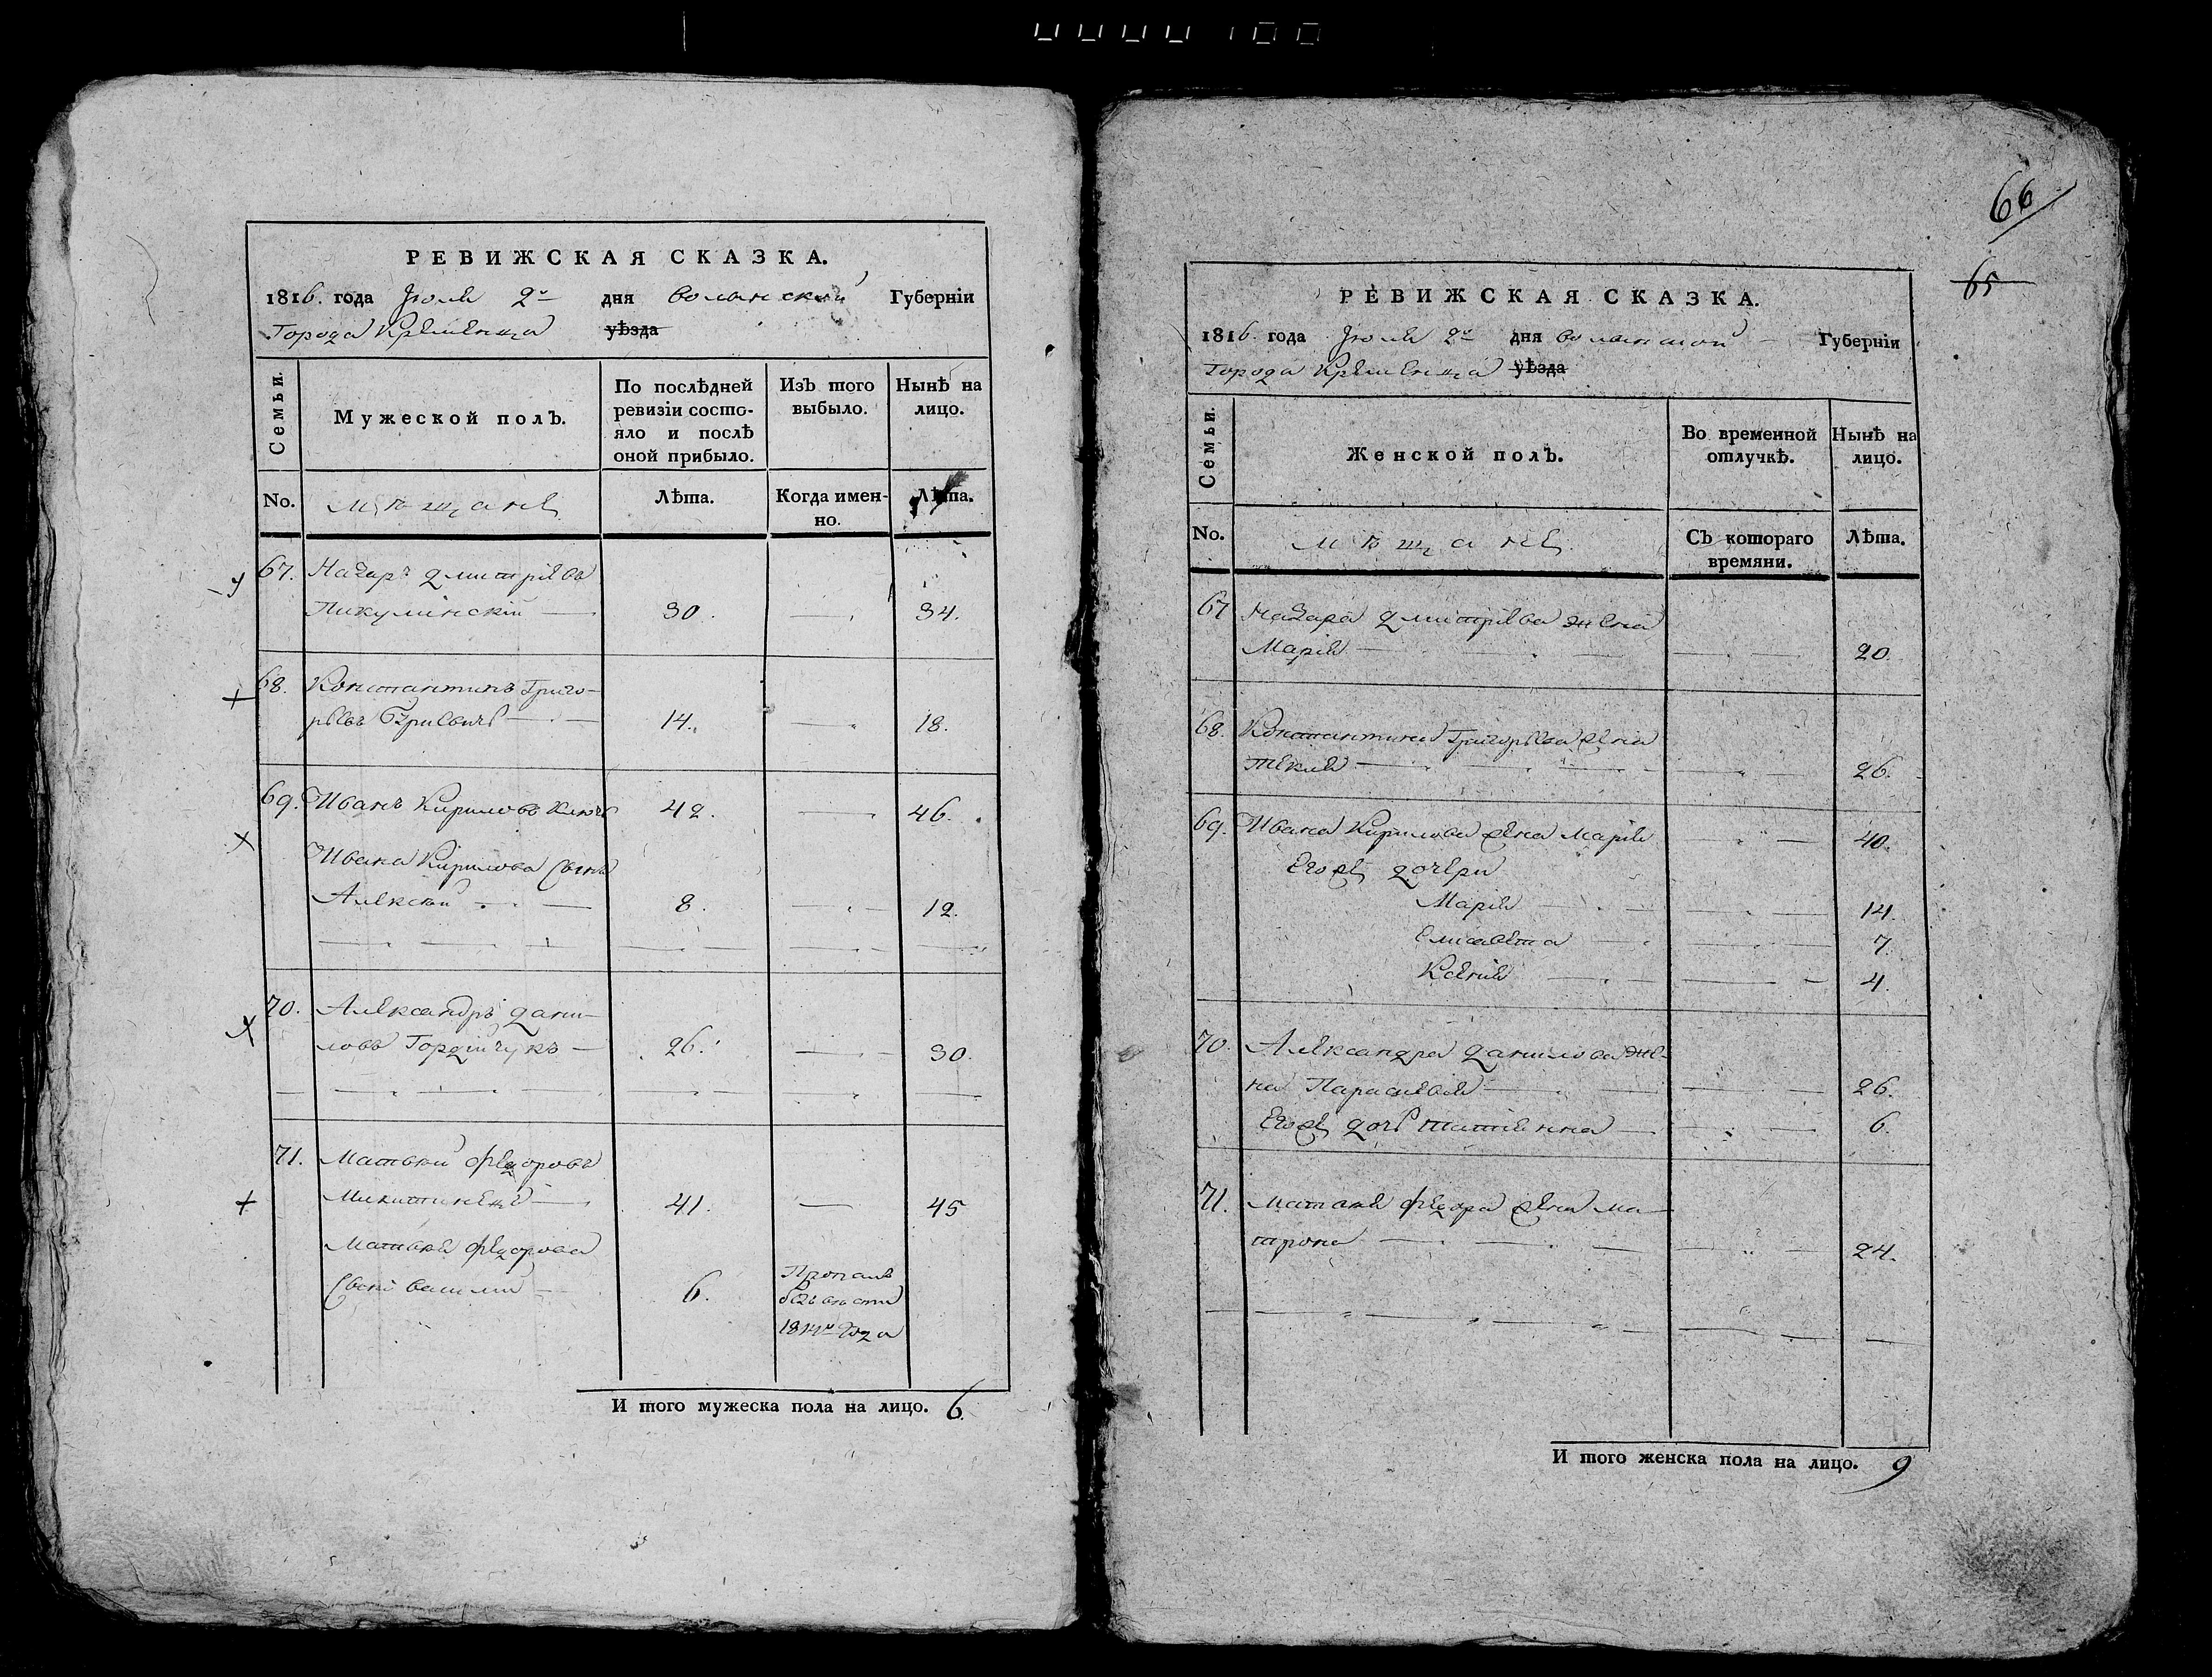 РЕВИЖСКАЯ СКАЗКА.
1816. года Іюля 2го дня Волынской Губерніи
Города Кременца уѣзда
Семьи.
Мужеской полъ.
По послѣдней ревизіи состояло и послѣ оной прибыло.
Изъ того выбыло.
Нынѣ на лицо.
No.
мѣщане
Лѣта.
Когда именно.
Лѣта.
67. Назаръ Дмитріевъ
Пикулинскій 30. 34.
68. Константинъ Григо-
рьевъ 14. 18.
69. Иванъ Кириловъ 42. 46.
Ивана Кирилова сынъ
Алексѣй 8. 12.
70. Александръ Дани-
ловъ Гордійчукъ 26. 30.
71. Матвѣй Федоровъ
Микитинецъ 41. 45
Матвѣя Федорова
сынъ Василій 6.
Пропалъ
безъ вѣсти
1814го года
И того мужеска пола на лицо. 6.
66
65
РЕВИЖСКАЯ СКАЗКА.
1816. года Іюля 2го дня Волынской Губерніи
Города Кременца уѣзда
Семьи.
Женской полъ.
Во временной отлучкѣ.
Нынѣ на лицо.
No.
мѣщане
Съ котораго времяни.
Лѣта.
67 Назара Дмитріева жена
Марія 20.
68. Константина Григорьева жена
Текля 26.
69. Ивана Кирилова жена Марія 40.
Его же дочери
Марія 14.
Елисавета 7.
Ксенія 4.
70. Александра Данилова же-
на Параскевія 26.
Его же дочь Татіанна 6.
71. Матвѣя Федора жена Ма-
трона 24.
И того женска пола на лицо. 9